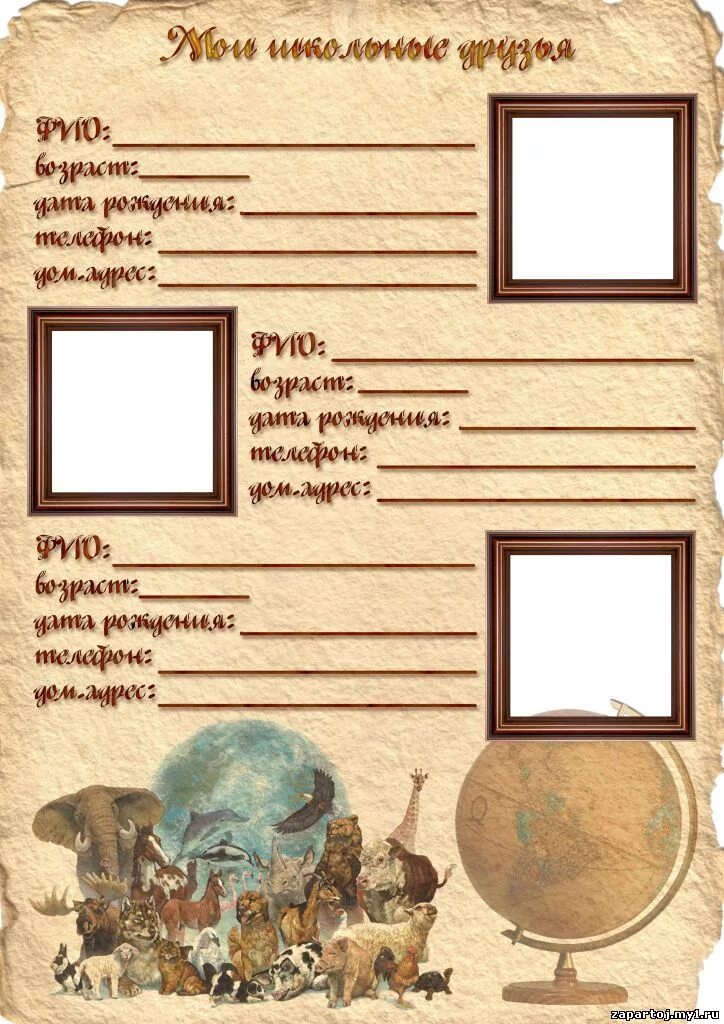 Мои школьные друзья
ФИО:
возраст:
дата рождения:
телефон:
дом.адрес:
ФИО:
возраст:
дата рождения:
телефон:
дом.адрес:
ФИО:
возраст:
дата рождения:
телефон:
дом.адрес:
zapartoj.my1.ru